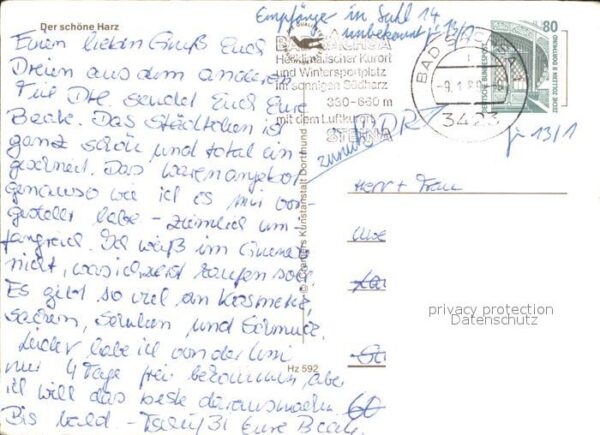 Der schöne Harz
Empfänger in Suhl 14
unbekannt jr 13/1
Einen lieben Gruß Euch
Dreien aus dem anderen
Tür Dtl. sendet Euch Eure
Beate. Das Städtchen ist
ganz schön und total ein
geschneit. Das Warenangebot
genauso wie ich es mir vor-
gestellt habe - ziemlich um-
fangreich. Ich weiß im Grunde
nicht, was ich jetzt kaufen soll.
Es gibt so viel an Kosmetik,
sachen, Schuhen und Schmuck.
Leider habe ich von der Uni
nur 4 Tage frei bekommen, aber
ich will das beste daraus machen.
Bis bald - Tschüß! Eure Beate.
BAD SACHSA
Heilklimatischer Kurort
und Wintersportplatz
im sonnigen Südharz
330-660 m
mit dem Luftkurort
STEINA
BAD SACHSA
-9.1.89
3423
80
DEUTSCHE BUNDESPOST
ZECHE ZOLLERN II DORTMUND
DDR
zurück
jr 13/1
Herr + Frau
Uwe
© Cramers Kunstanstalt Dortmund
Hz 592
60
privacy protection
Datenschutz